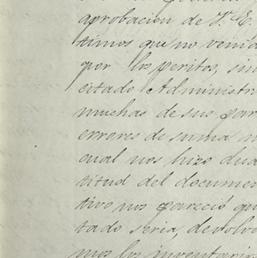 aprobacion de S. E.
timos que no venia
por los peritos, sin
citado Administra
muchas de sus par
errores de suma
cual nos hizo dud
titud del documen
tivo nos pareció qu
tado seria, devolve
mos los inventarios